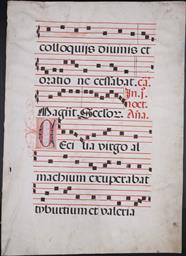 colloquijs diuinis et
oratio ne cessabat. ca.
In. ij.
noct.
Magnif. Seclor. Aña.
Ceci lia virgo al
machium exuperabat
tyburtium et valeria